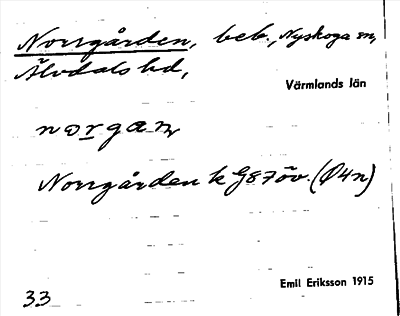 Norrgården, beb., Nyskoga sn,
Älvdals hd,
Värmlands län
norgan
Norrgården k G87öv. (Ø4n)
Emil Eriksson 1915
33